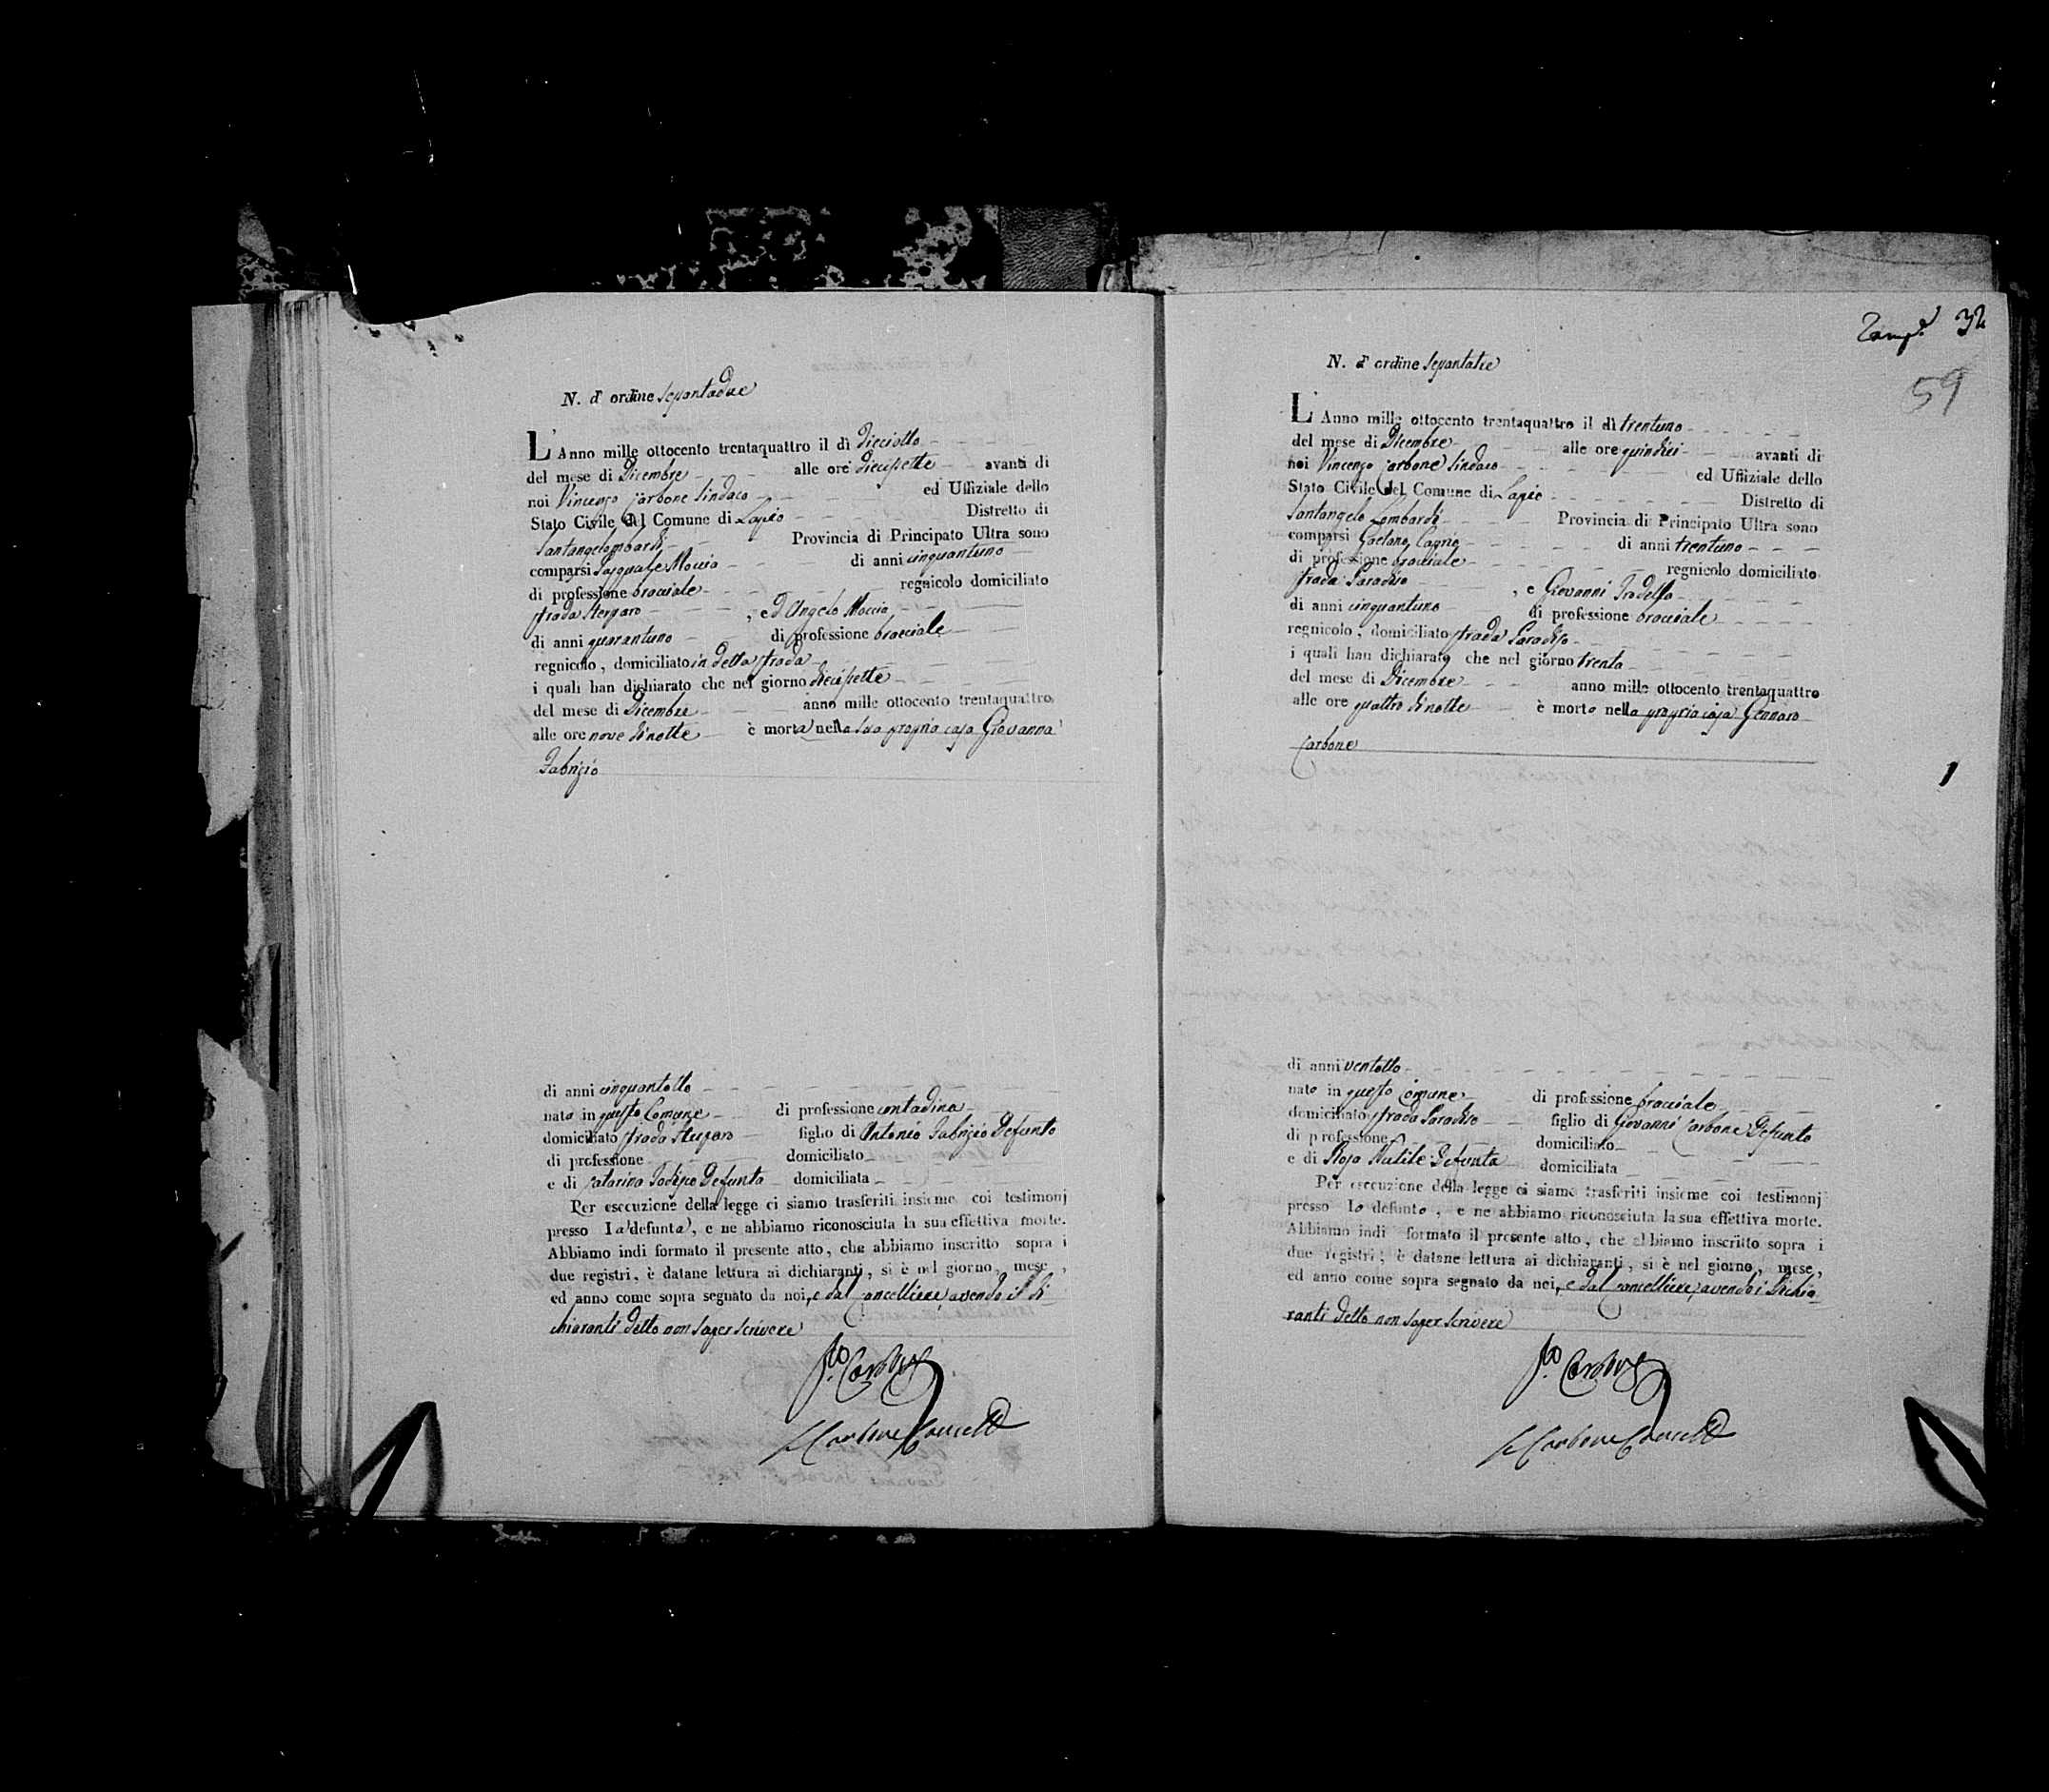 N. d' ordine sessantadue
L' Anno mille ottocento trentaquattro il dì dieciotto
del mese di Dicembre alle ore diecisette avanti di
noi Vincenzo Carbone Sindaco ed Uffiziale dello
Stato Civile del Comune di Lapio Distretto di
Santangelombardi Provincia di Principato Ultra sono
comparsi Pasquale Moccia di anni cinquantuno
di professione bracciale regnicolo domiciliato
strada , ed Angelo Moccia
di anni quarantuno di professione bracciale
regnicolo, domiciliato in detta strada
i quali han dichiarato che nel giorno diecisette
del mese di Dicembre anno mille ottocento trentaquattro
alle ore nove di notte è morta nella sua propria casa Giovanna
Fabrizio
di anni cinquantotto
nato in questo Comune di professione contadina
domiciliato strada figlio di Antonio Fabrizio Defunto
di professione domiciliato
e di Catarina Defunta domiciliata
Per esecuzione della legge ci siamo trasferiti insieme coi testimonj
presso la defunta, e ne abbiamo riconosciuta la sua effettiva morte.
Abbiamo indi formato il presente atto, che abbiamo inscritto sopra i
due registri, è datane lettura ai dichiaranti, si è nel giorno, mese,
ed anno come sopra segnato da noi, e dal Cancelliere, avendo i di
chiaranti detto non saper scrivere
Carbone
Carbone Cancell
Zamp. 32
59
N. d' ordine sessantatre
L' Anno mille ottocento trentaquattro il dì trentuno
del mese di Dicembre alle ore quindici avanti di
noi Vincenzo Carbone Sindaco ed Uffiziale dello
Stato Civile del Comune di Lapio Distretto di
Santangelo Lombardi Provincia di Principato Ultra sono
comparsi Gaetano di anni trentuno
di professione bracciale regnicolo domiciliato
strada Paradiso , e Giovanni
di anni cinquantuno di professione bracciale
regnicolo, domiciliato strada Paradiso
i quali han dichiarato che nel giorno trenta
del mese di Dicembre anno mille ottocento trentaquattro
alle ore quattro di notte è morto nella propria casa Gennaro
Carbone
1
di anni ventotto
nato in questo Comune di professione bracciale
domiciliato strada Paradiso figlio di Giovanni Carbone Defunto
di professione domiciliato
e di Rosa Defunta domiciliata
Per esecuzione della legge ci siamo trasferiti insieme coi testimonj
presso lo defunto, e ne abbiamo riconosciuta la sua effettiva morte.
Abbiamo indi formato il presente atto, che abbiamo inscritto sopra i
due registri, è datane lettura ai dichiaranti, si è nel giorno, mese,
ed anno come sopra segnato da noi, e dal Cancelliere, avendo i dichia
ranti detto non saper scrivere
Carbone
Carbone Cancell